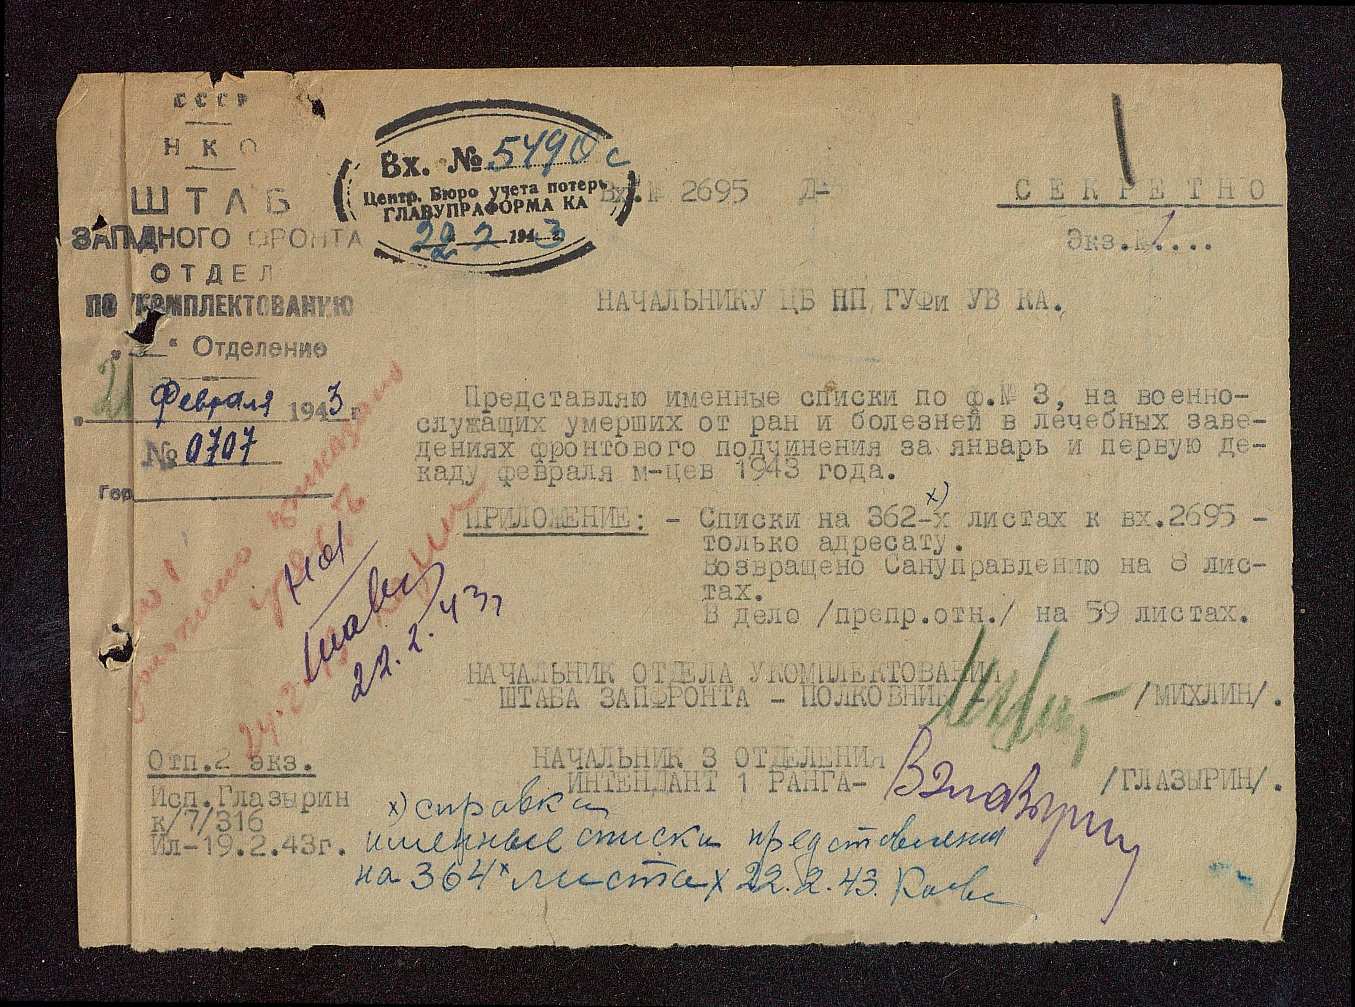 СССР
НКО
ШТАБ
ЗАПАДНОГО ФРОНТА
ОТДЕЛ
ПО УКОМПЛЕКТОВАНИЮ
Отделение
21 Февраля 1943 г
№ 0707
Гор
Вх. № 5490с
Центр. Бюро учета потерь
ГЛАВУПРАФОРМА КА
22 2 1943
Вх.№ 2695
СЕКРЕТНО
Экз.№ 1...
НАЧАЛЬНИКУ ЦБ ПП ГУФи УВ КА.
Представляю именные списки по ф.№ 3, на военно-
служащих умерших от ран и болезней в лечебных заве-
дениях фронтового подчинения за январь и первую де-
каду февраля м-цев 1943 года.
ПРИЛОЖЕНИЕ: - Списки на 362-х х) листах к вх.2695 -
только адресату.
Возвращено Сануправлению на 8 лис-
тах.
В дело /препр.отн./ на 59 листах.
НАЧАЛЬНИК ОТДЕЛА УКОМПЛЕКТОВАНИЯ
ШТАБА ЗАПФРОНТА - ПОЛКОВНИК /МИХЛИН/.
НАЧАЛЬНИК 3 ОТДЕЛЕНИЯ
ИНТЕНДАНТ 1 РАНГА- /ГЛАЗЫРИН/.
22.2.43г
Отп.2 экз.
Исп.Глазырин
к/7/316
ИЛ-19.2.43г.
х) справка
именные списки представлены
на 364х листах 22.2.43.